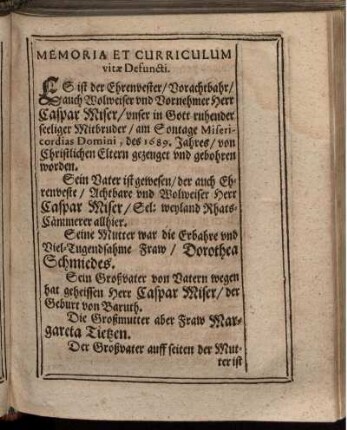 MEMORIA ET CURRICULUM
vitæ Defuncti.
ES ist der Ehrenvester/ Vorachtbahr/
auch Wolweiser vnd Vornehmer Herr
Caspar Miser/ vnser in Gott ruhender
seeliger Mitbruder/ am Sontage Miseri-
cordias Domini, des 1689. Jahres/ von
Christlichen Eltern gezeuget vnd gebohren
worden.
Sein Vater ist gewesen/ der auch Eh-
renveste/ Achtbare vnd Wolweiser Herr
Caspar Miser/ Sel: weyland Rhats-
Cämmerer allhier.
Seine Mutter war die Erbahre vnd
Viel-Tugendsahme Fraw/ Dorothea
Schmiedes.
Sein Großvater von Vatern wegen
hat geheissen Herr Caspar Miser/ der
Geburt von Baruth.
Die Großmutter aber Fraw Mar-
gareta Tietzen.
Der Großvater auff seiten der Mut-
ter ist